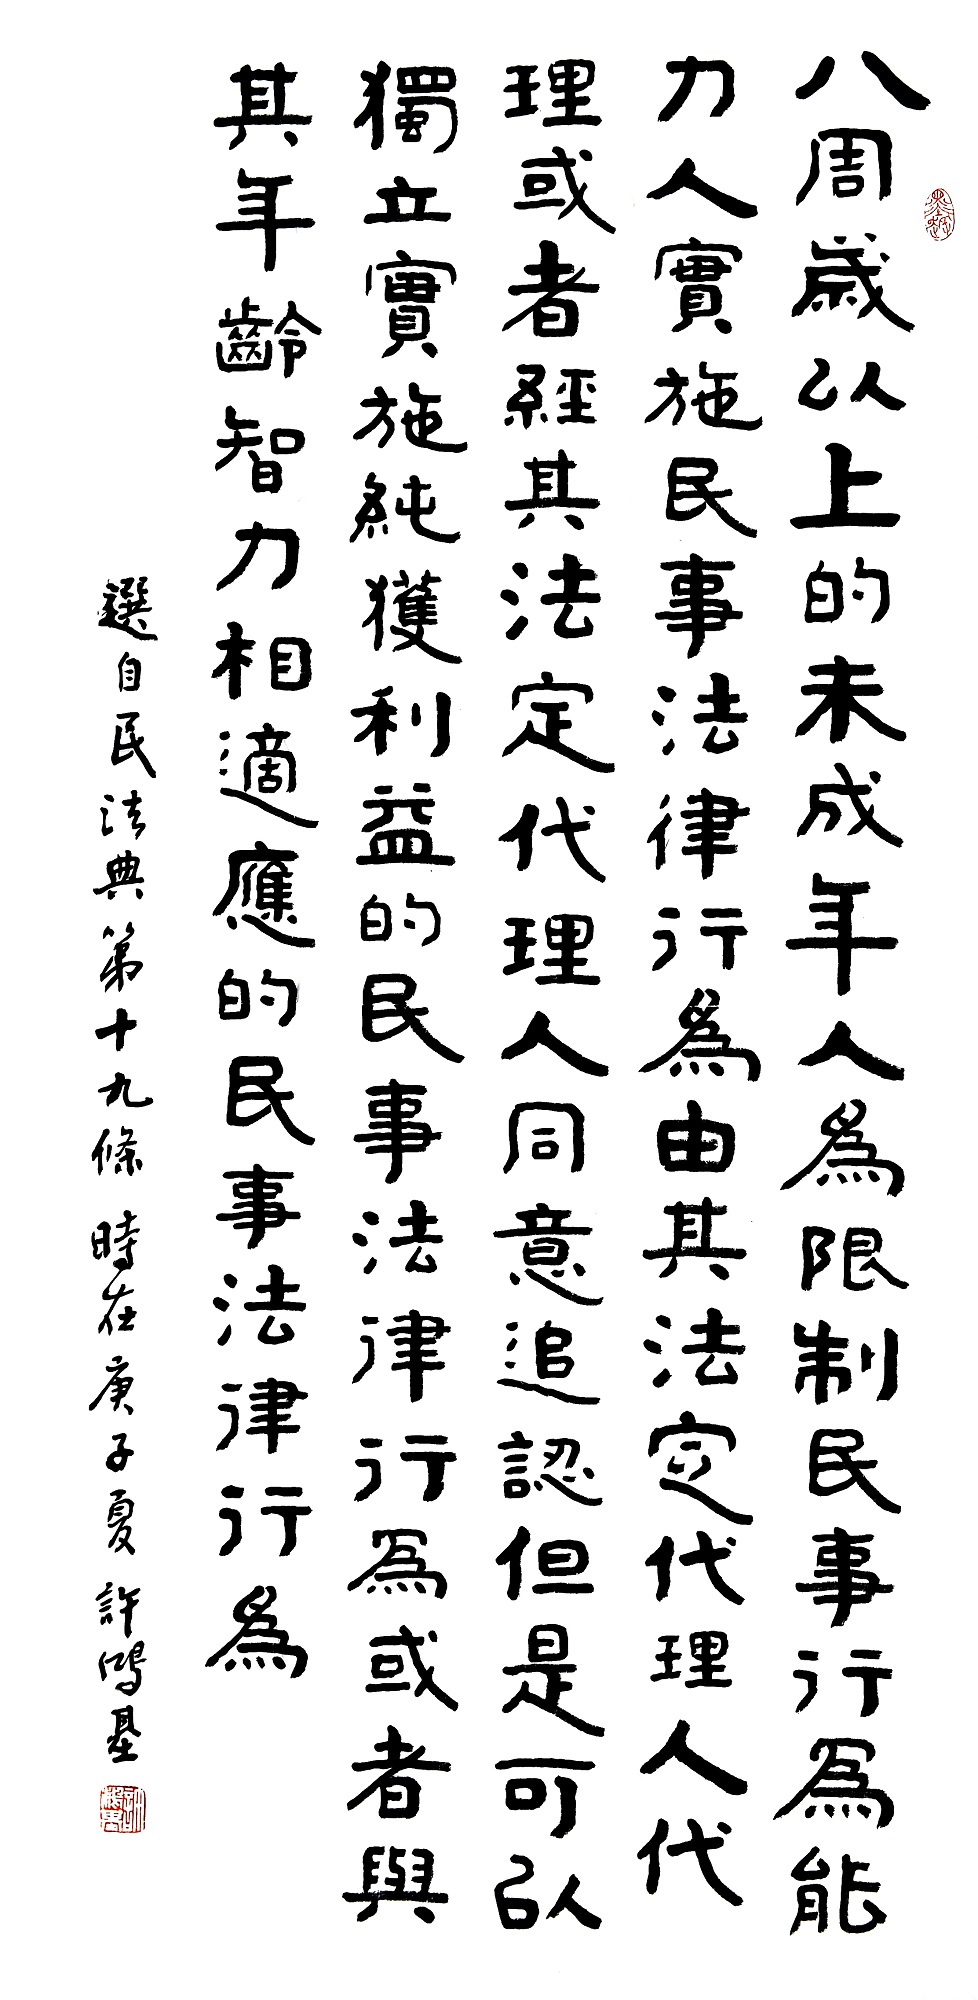 八周歲以上的未成年人爲限制民事行爲能
力人實施民事法律行爲由其法定代理人代
理或者經其法定代理人同意追認但是可以
獨立實施純獲利益的民事法律行爲或者與
其年齡智力相適應的民事法律行爲
選自民法典第十九條 時在庚子夏 許鴻基